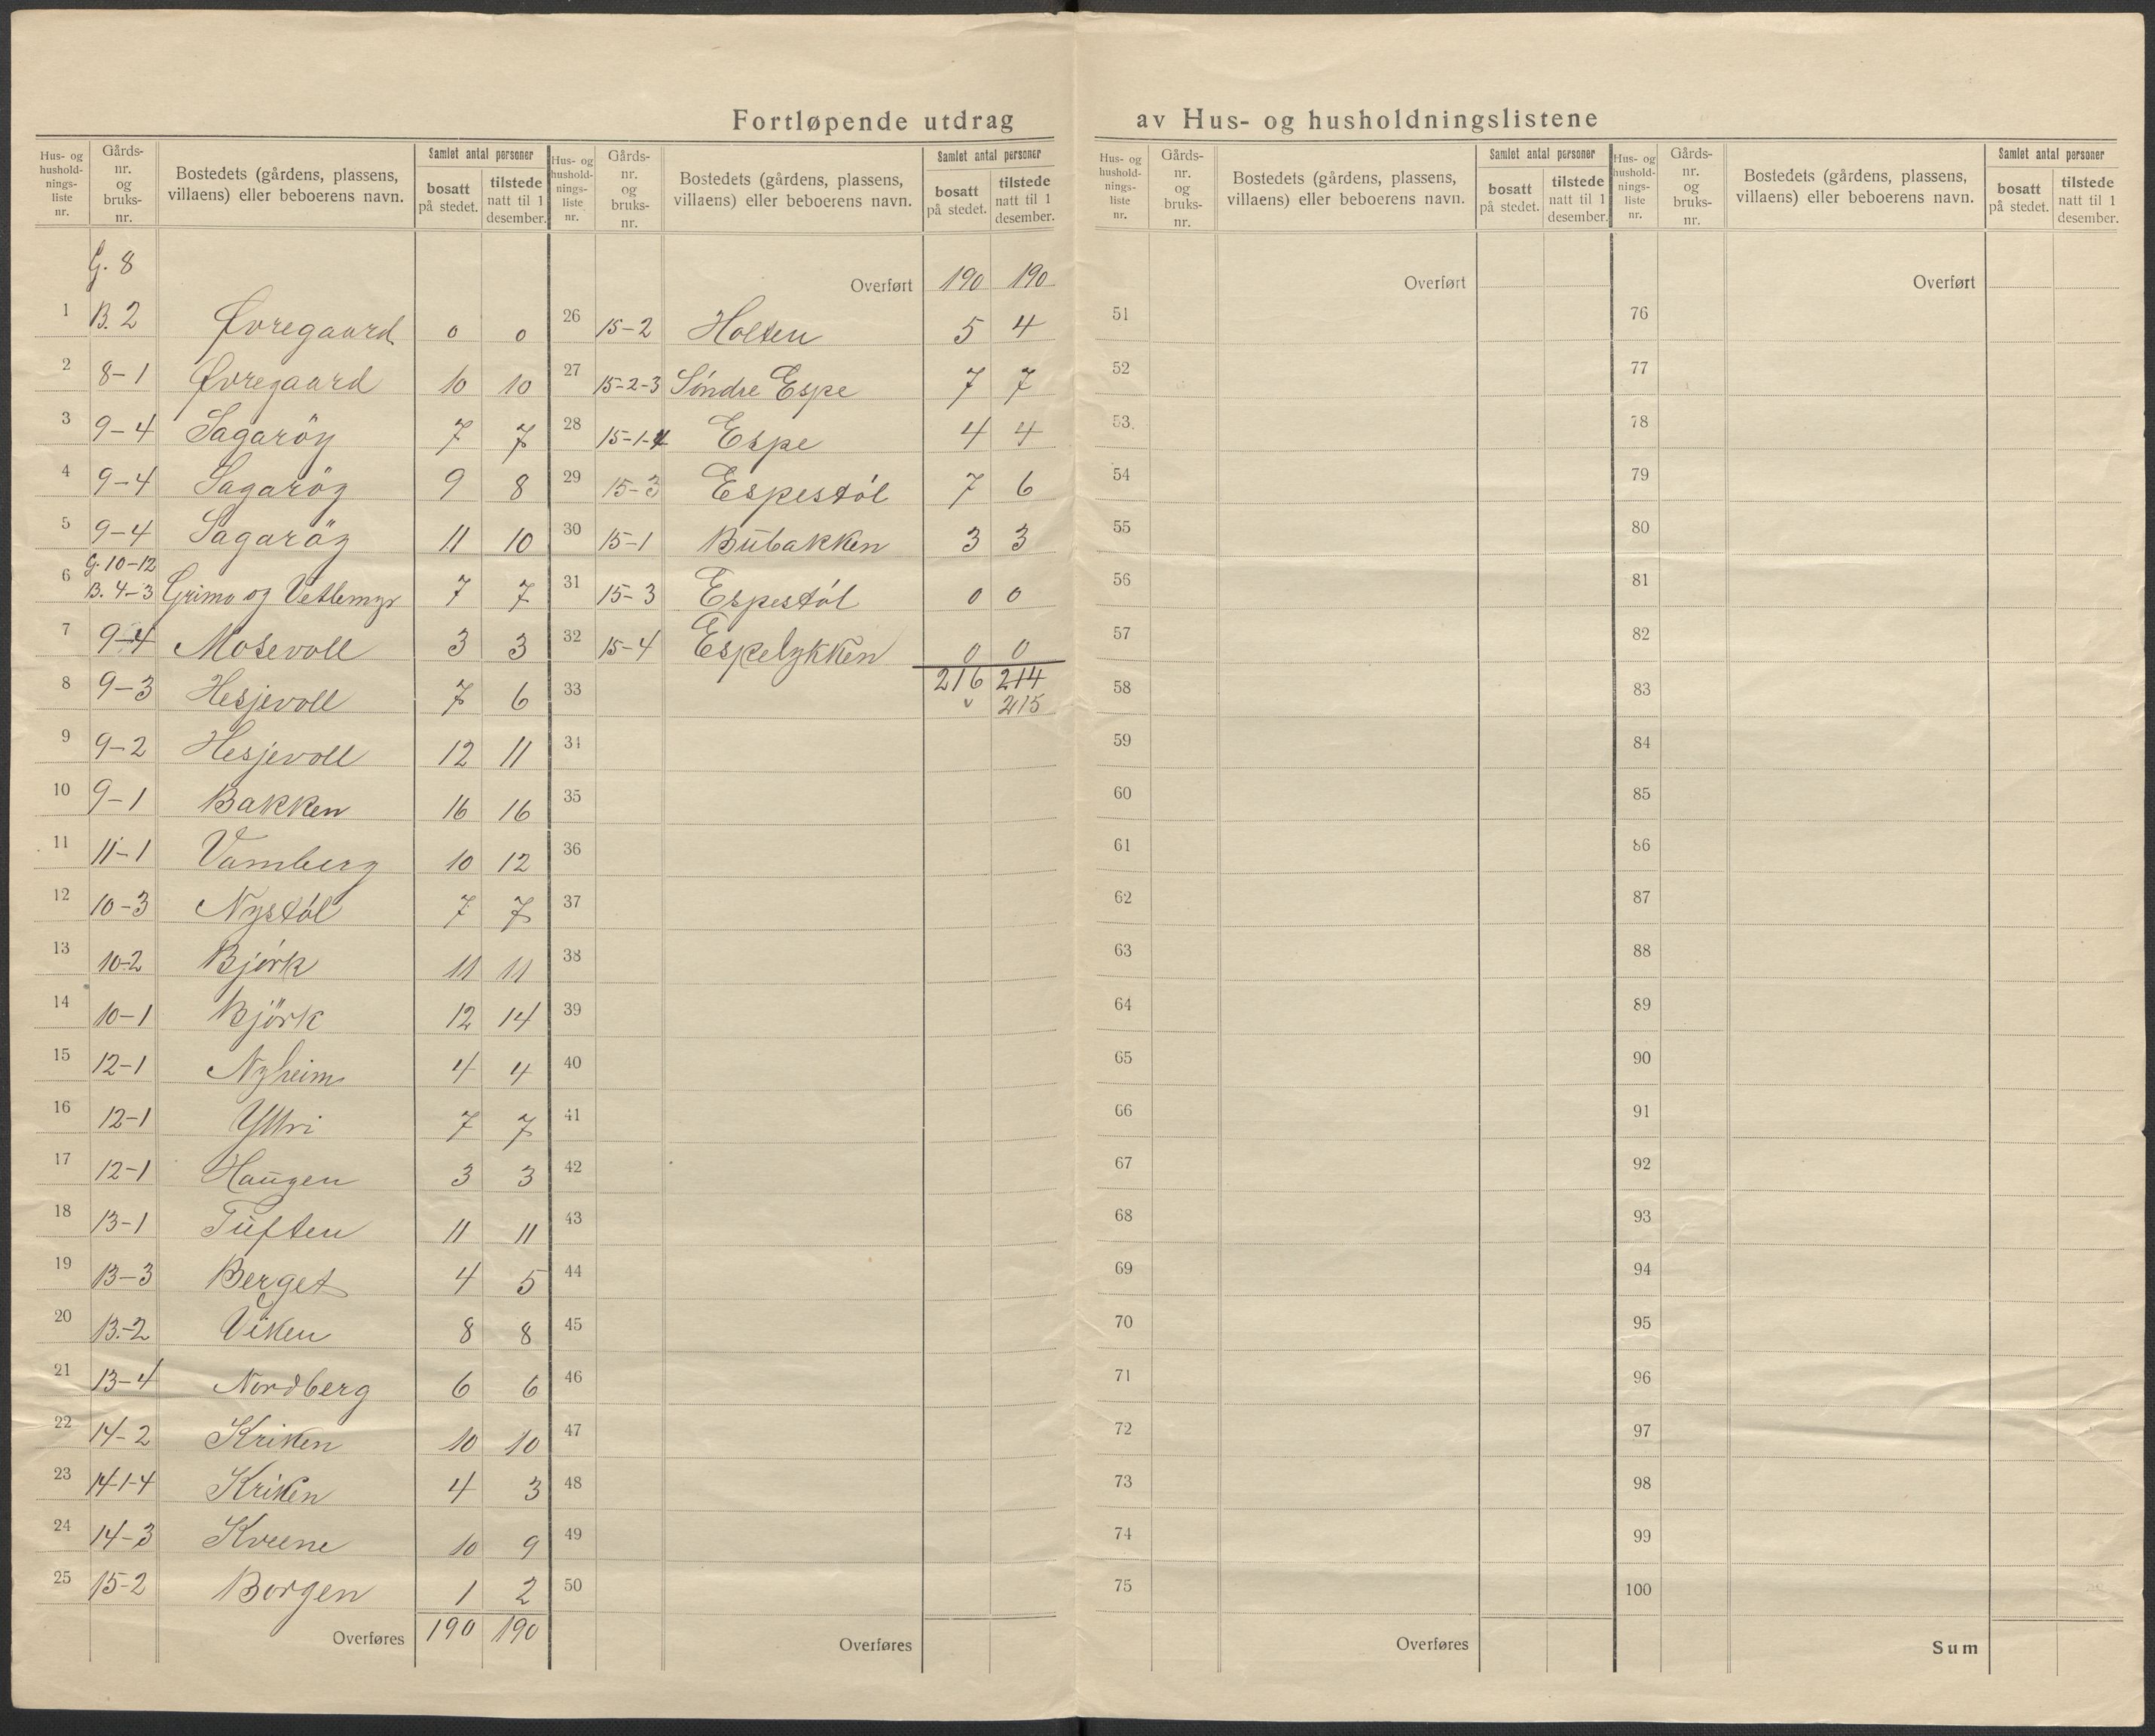 Fortløpende utdrag av Hus- og husholdningslistene
Hus- og hushold-nings-liste nr. | Gårds-nr. og bruks-nr. | Bostedets (gårdens, plassens, villaens) eller beboerens navn. | Samlet antal personer | bosatt på stedet. | tilstede natt til 1 desember.
G. 8
1 B. 2 Øvregaard 0 0
2 8-1 Øvregaard 10 10
3 9-4 Sagaröy 7 7
4 9-4 Sagaröy 9 8
5 9-4 Sagaröy 11 10
G. 10-12
6 B. 4-3 Grimo og Vetlemyr 7 7
7 9-4 Mosevoll 3 3
8 9-3 Hesjevoll 7 6
9 9-2 Hesjevoll 12 11
10 9-1 Bakken 16 16
11 11-1 Vamberg 10 12
12 10-3 Nystøl 7 7
13 10-2 Bjørk 11 11
14 10-1 Björk 12 14
15 12-1 Nyheim 4 4
16 12-1 Yttri 7 7
17 12-1 Haugen 3 3
18 13-1 Tuften 11 11
19 13-3 Berget 4 5
20 13-2 Viken 8 8
21 13-4 Nordberg 6 6
22 14-2 Kriken 10 10
23 14-1-4 Kriken 4 3
24 14-3 Kvene 10 9
25 15-2 Borgen 1 2
Overføres 190 190
Hus- og hushold-nings-liste nr. | Gårds-nr. og bruks-nr. | Bostedets (gårdens, plassens, villaens) eller beboerens navn. | Samlet antal personer | bosatt på stedet. | tilstede natt til 1 desember.
Overført 190 190
26 15-2 Holten 5 4
27 15-2-3 Söndre Espe 7 7
28 15-1-4 Espe 4 4
29 15-3 Espestøl 7 6
30 15-1 Bubakken 3 3
31 15-3 Espestøl 0 0
32 15-4 Espelykken 0 0
33 216 214
215
34
35
36
37
38
39
40
41
42
43
44
45
46
47
48
49
50
Overføres
Hus- og hushold-nings-liste nr. | Gårds-nr. og bruks-nr. | Bostedets (gårdens, plassens, villaens) eller beboerens navn. | Samlet antal personer | bosatt på stedet. | tilstede natt til 1 desember.
Overført
51
52
53
54
55
56
57
58
59
60
61
62
63
64
65
66
67
68
69
70
71
72
73
74
75
Overføres
Hus- og hushold-nings-liste nr. | Gårds-nr. og bruks-nr. | Bostedets (gårdens, plassens, villaens) eller beboerens navn. | Samlet antal personer | bosatt på stedet. | tilstede natt til 1 desember.
Overført
76
77
78
79
80
81
82
83
84
85
86
87
88
89
90
91
92
93
94
95
96
97
98
99
100
Sum